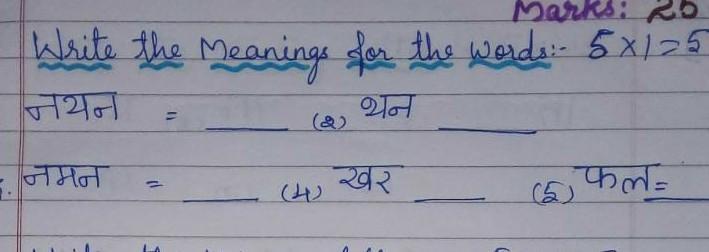 Marks: 25
Write the Meanings for the words:- 5 x 1 = 5
नयन = ____ (२) थन ____
नमन = ____ (४) खर ____ (५) फल = ____